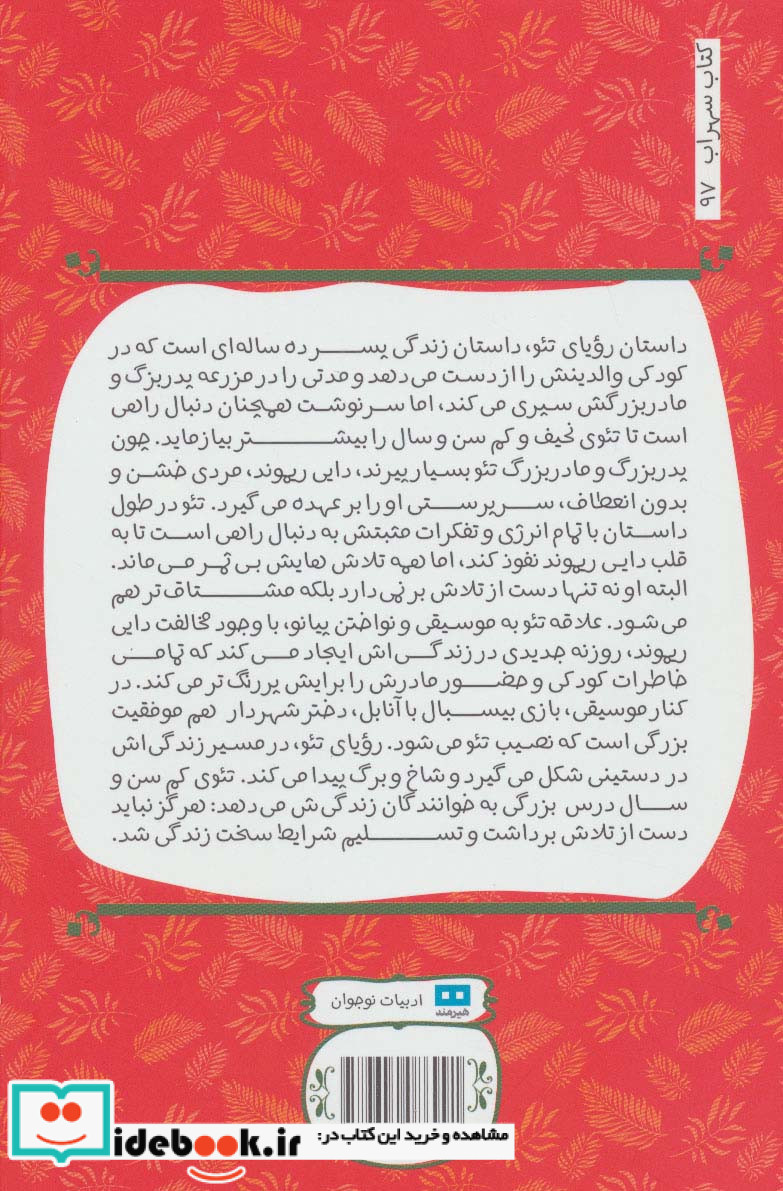 کتاب سهراب ۹۷
داستان رؤیای تئو، داستان زندگی پسر ده ساله‌ای است که در
کودکی والدینش را از دست می‌دهد و مدتی را در مزرعه پدربزگ و
مادربزرگش سپری می‌کند، اما سرنوشت همچنان دنبال راهی
است تا تئوی نحیف و کم سن و سال را بیشتر بیازماید. چون
پدربزرگ و مادربزرگ تئو بسیار پیرند، دایی ریموند، مردی خشن و
بدون انعطاف، سرپرستی او را بر عهده می‌گیرد. تئو در طول
داستان با تمام انرژی و تفکرات مثبتش به دنبال راهی است تا به
قلب دایی ریموند نفوذ کند، اما همه تلاش هایش بی ثمر می‌ماند.
البته او نه تنها دست از تلاش برنمی‌دارد بلکه مشتاق تر هم
می‌شود. علاقه تئو به موسیقی و نواختن پیانو، با وجود مخالفت دایی
ریموند، روزنه جدیدی در زندگی‌اش ایجاد می‌کند که تمامی
خاطرات کودکی و حضور مادرش را برایش پررنگ تر می‌کند. در
کنار موسیقی، بازی بیسبال با آنابل، دختر شهردار هم موفقیت
بزرگی است که نصیب تئو می‌شود. رؤیای تئو، در مسیر زندگی‌اش
در دستینی شکل می‌گیرد و شاخ و برگ پیدا می‌کند. تئوی کم سن و
سال درس بزرگی به خوانندگان زندگی‌ش می‌دهد: هرگز نباید
دست از تلاش برداشت و تسلیم شرایط سخت زندگی شد.
هیرمند ادبیات نوجوان
مشاهده و خرید این کتاب در:
idebook.ir